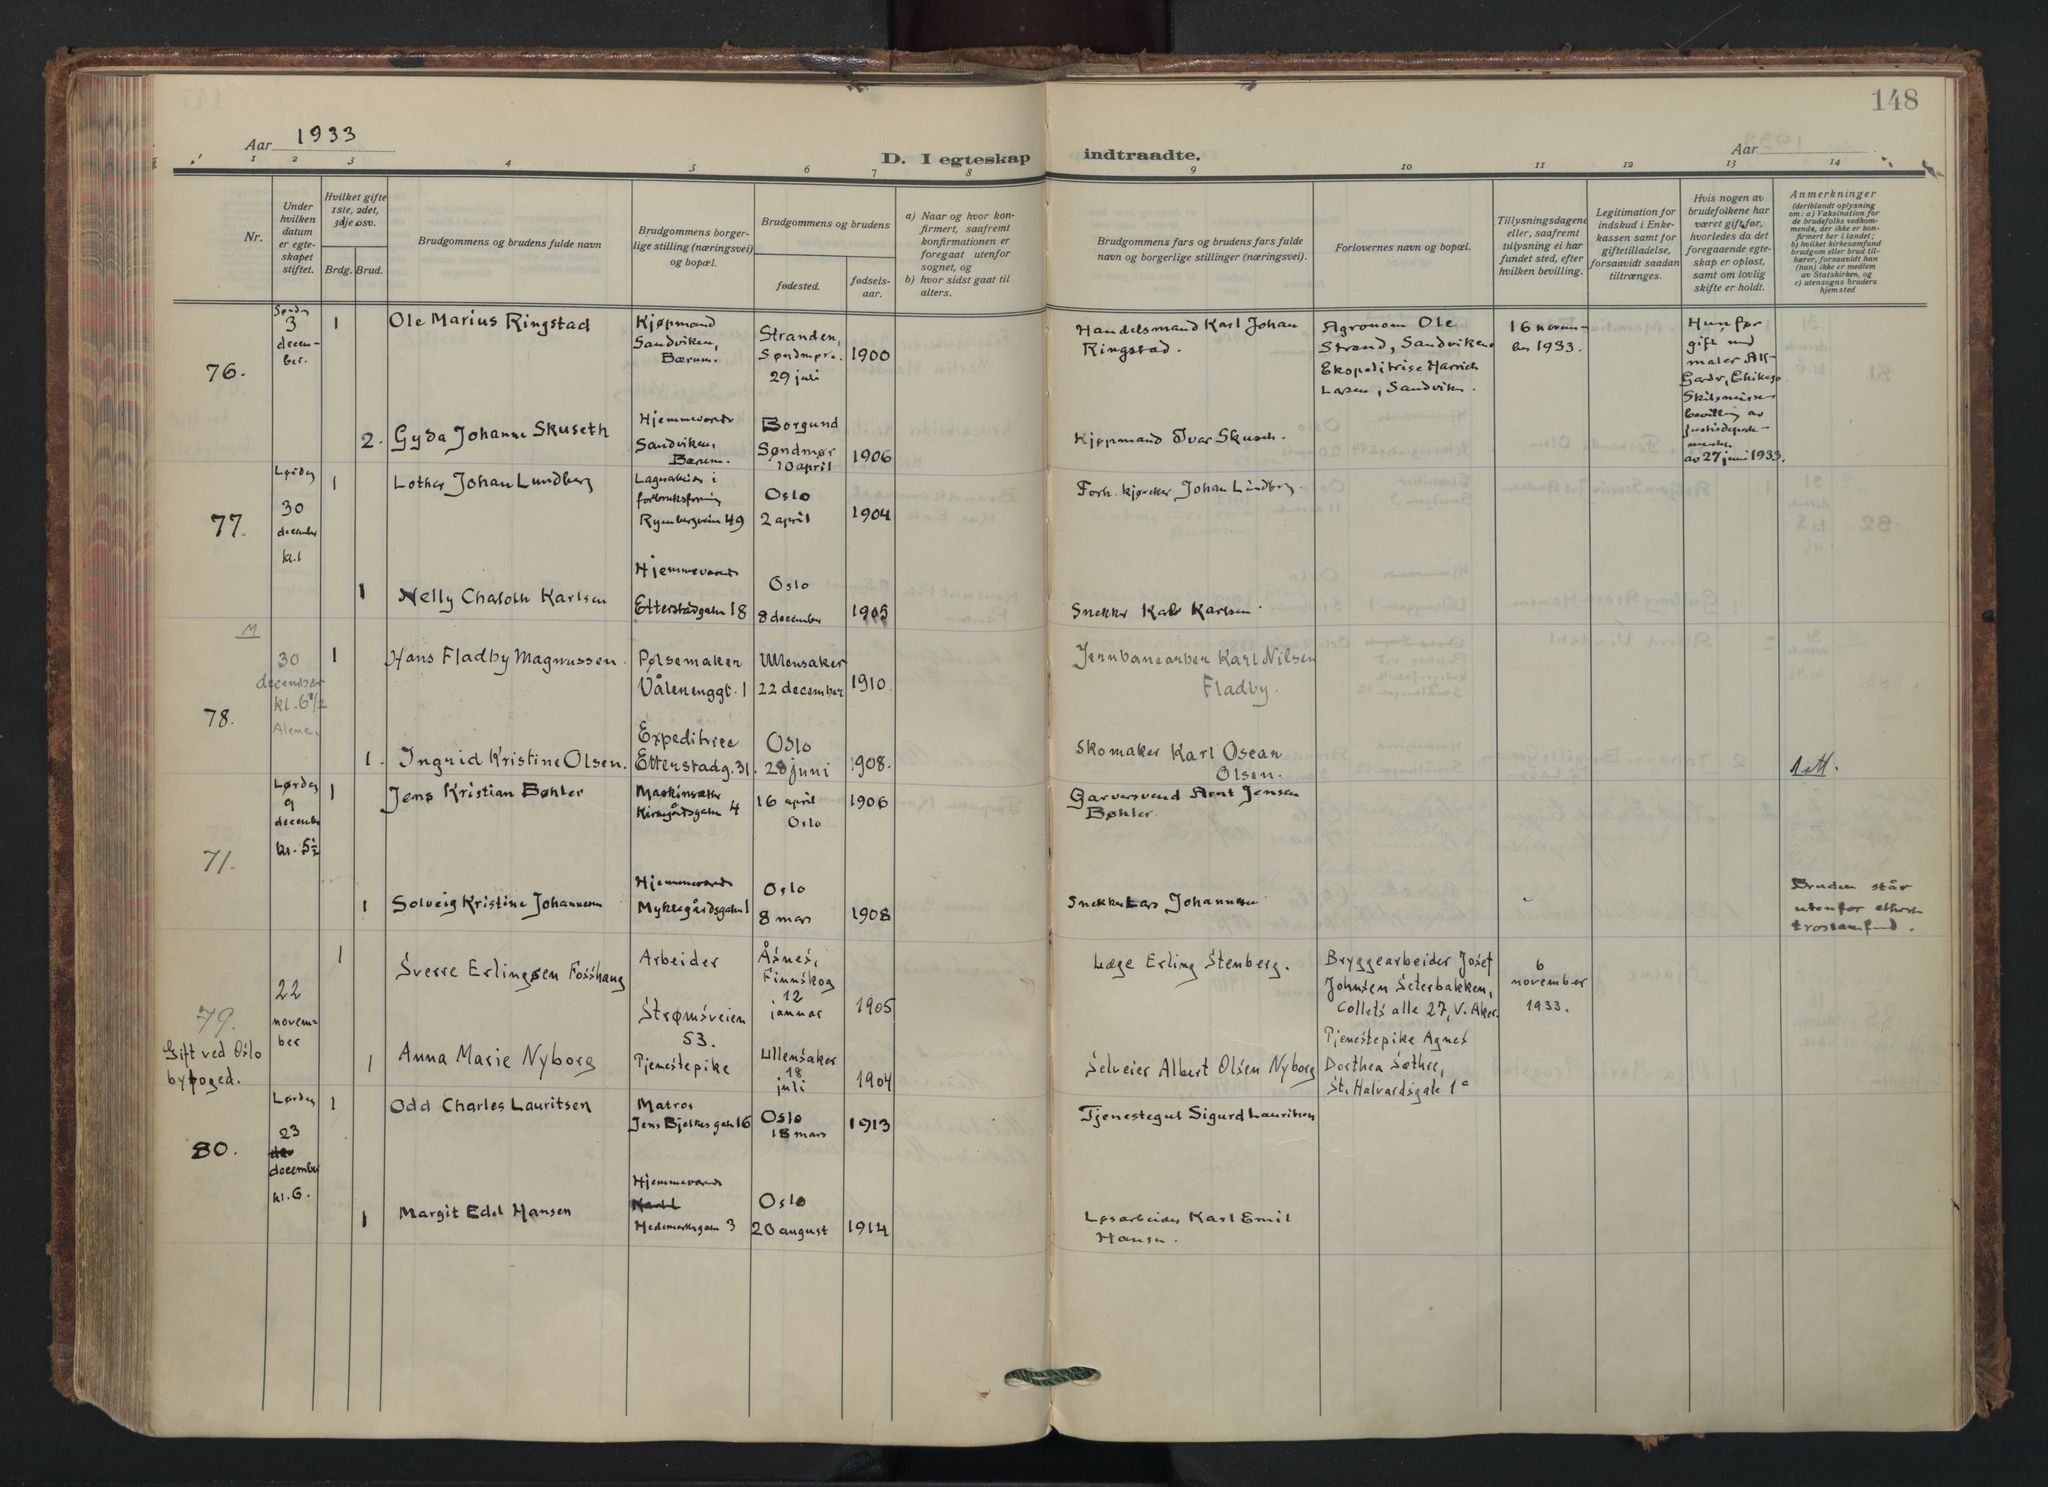 148
Aar 1933
D. I egteskap indtraadte.
Aar
1 2 3 4 5 6 7 8 9 10 11 12 13 14
Nr.
Under
hvilken
datum
er egte-
skapet
stiftet.
Hvilket gifte
1ste, 2det,
3dje osv.
Brdg. Brud.
Brudgommens og brudens fulde navn
Brudgommens borger-
lige stilling (næringsvei)
og bopæl.
Brudgommens og brudens
fødested.
fødsels-
aar.
a) Naar og hvor kon-
firmert, saafremt
konfirmationen er
foregaat utenfor
sognet, og
b) hvor sidst gaat til
alters.
Brudgommens fars og brudens fars fulde
navn og borgerlige stillinger (næringsvei).
Forlovernes navn og bopæl.
Tillysningsdagene
eller, saafremt
tillysning ei har
fundet sted, efter
hvilken bevilling.
Legitimation for
indskud i Enke-
kassen samt for
giftetilladelse,
forsaavidt saadan
tiltrænges.
Hvis nogen av
brudefolkene har
været gift før,
hvorledes da det
foregaaende egte-
skap er opløst,
samt om lovlig
skifte er holdt.
Anmerkninger
(deriblandt oplysning
om: a) Vaksination for
de brudefolks vedkom-
mende, der ikke er kon-
firmert her i landet;
b) hvilket kirkesamfund
brudgom eller brud til-
hører, forsaavidt han
(hun) ikke er medlem
av Statskirken, og
c) utensogns bruders
hjemsted
76.
3
decem-
ber.
1
Ole Marius Ringstad
Kjøpmand
Sandviken,
Bærum.
Stranden,
Søndmøre.
29 juli
1900
Handelsmand Karl Johan
Ringstad.
Agronom Ole
Strand, Sandviken
Ekspeditrise Harriet
Larsen, Sandviken.
16 novem-
ber 1933.
Hun før
gift med
maler
Gardr, Chikago
Skilsmisse
bevilling av
Justisdeparte-
mentet
av 27 juni 1933.
2.
Gyda Johanne Skuseth
Hjemmeværende
Sandviken,
Bærum.
Borgund
Søndmør
10 april
1906
Kjøpmand Ivar Skuseth.
77.
Lørdag
30
december
kl. 1
1
Lothar Johan Lundberg
Lagerarbeider i
forbruksforening
Rynbergveien 49
Oslo
2 april
1904
Forh. kjørcker Johan Lundberg
1
Nelly Chaloth Karlsen
Hjemmeværende
Etterstadgaten 18
Oslo
8 december
1905
Snekker Karl Karlsen.
78.
30
december
kl. 6 1/2
Alene.
1
Hans Fladby Magnussen.
Pølsemaker
Vålerenggt. 1
Ullensaker
22 december
1910.
Jernbanearber Karl Nilsen
Fladby.
1.
Ingrid Kristine Olsen.
Expeditrice
Etterstadg. 31.
Oslo
28 juni
1908.
Skomaker Karl Oscar
Olsen.
Att.
71.
Lørdag
9
december
kl. 5 1/2
1
Jens Kristian Bøhler
Maskinsætter
Kirkegårdsgaten 4
16 april
Oslo
1906
Garversvend Arnt Jensen
Bøhler
1
Solveig Kristine Johannesen
Hjemmeværende
Myklegårdsgaten 1
Oslo
8 mars
1908
Snekker Lars Johannesen
Bruden står
utenfor ethvert
trossamfund.
79.
Gift ved Oslo
byfoged.
22
novem-
ber
1
Sverre Erlingsøn Fosshaug
Arbeider
Strømsveien
53.
Åsnes,
Finnskog
12
januar
1905
Læge Erling Stenberg.
Bryggearbeider Josef
Johnsen Seterbakken,
Collets alle 27, V. Aker.
6
november
1933.
1
Anna Marie Nyborg
Tjenestepike
Ullensaker
18
juli
1904
Selveier Albert Olsen Nyborg
Tjenestepike Agnes
Dorthea Sæthre,
St. Halvardsgate 1c
80.
Lørdag
23
december
kl. 6.
1
Odd Charles Lauritsen
Matros
Jens Bjelkes gaten 16
Oslo
18 mars
1913
Tjenestegut Sigurd Lauritsen
1
Margit Edel Hansen
Hjemmeværende
Hedemarksgaten 3
Oslo
20 august
1914
Løsarbeider Karl Emil
Hansen.